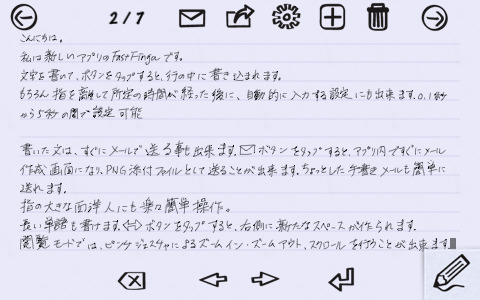 2/7
こんにちは。
私は新しいアプリのFastFingaです。
文字を書いて、ボタンをタップすると、行の中に書き込まれます。
もちろん指を離して所定の時間が経った後に、自動的に入力する設定にも出来ます。0.1秒
から5秒の間で設定可能
書いた文は、すぐにメールで送る事も出来ます。ボタンをタップすると、アプリ内ですぐにメール
作成画面になり、PNG添付ファイルとして送ることが出来ます。ちょっとした手書きメールも簡単に
送れます。
指の大きな西洋人にも楽々簡単操作。
長い単語も書けます。⇔ボタンをタップすると、右側に新たなスペースが作られます。
閲覧モードでは、ピンチジェスチャによるズームイン・ズームアウト、スクロールを行うことが出来ます